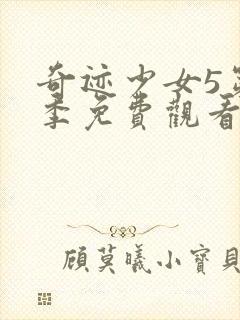 奇迹少女5第
季免費觀看
顾莫曦小寶貝